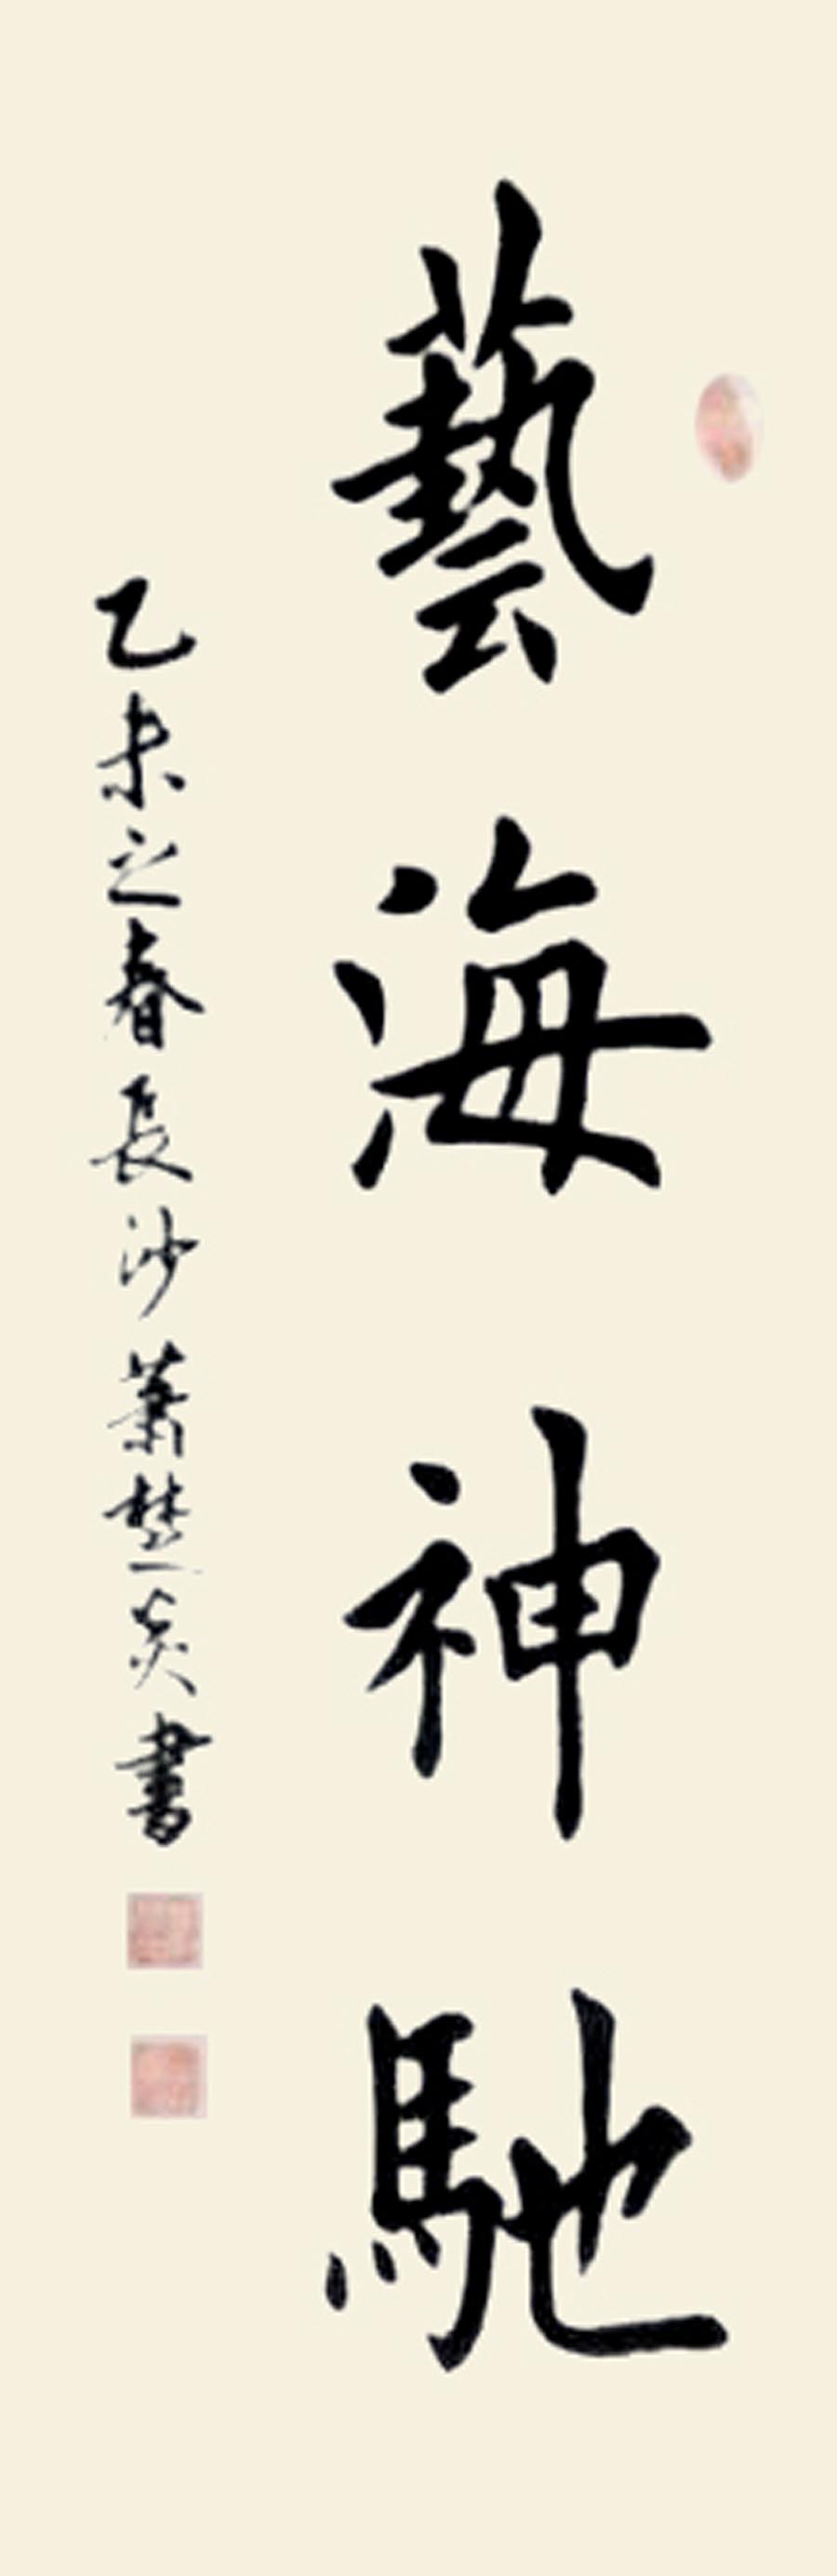 藝海神馳
乙未之春長沙蕭楚炎書